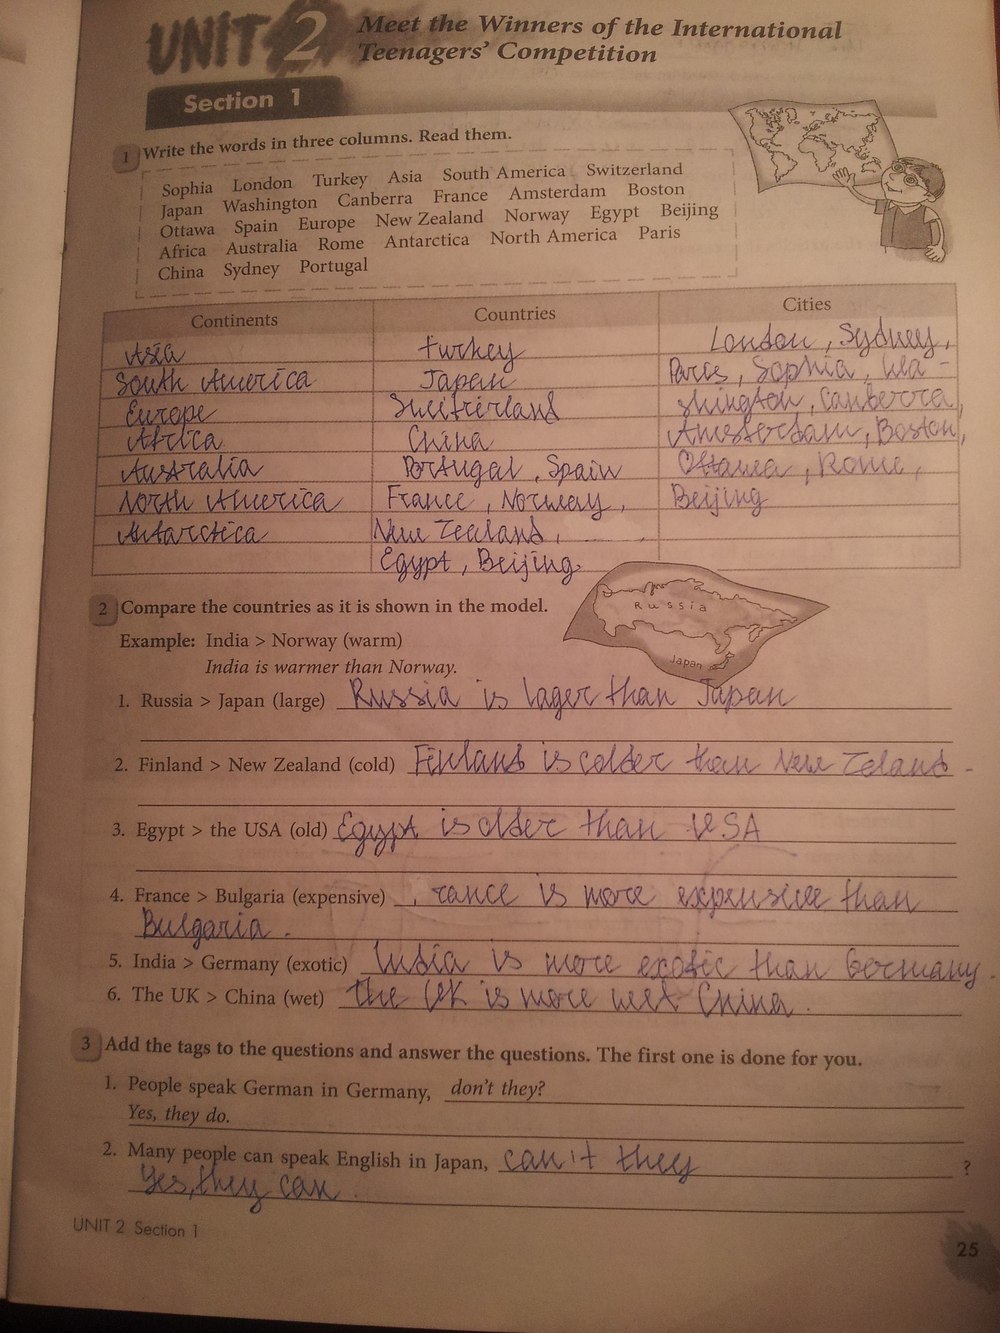 UNIT 2 Meet the Winners of the International
Teenagers' Competition
Section 1
1 Write the words in three columns. Read them.
Sophia London Turkey Asia South America Switzerland
Japan Washington Canberra France Amsterdam Boston
Ottawa Spain Europe New Zealand Norway Egypt Beijing
Africa Australia Rome Antarctica North America Paris
China Sydney Portugal
Continents Countries Cities
Asia turkey London, Sydney,
South America Japan Paris, Sophia, Wa-
Europe Switrierland shington, Canberra,
Africa China Amsterdam, Boston,
Australia Portugal, Spain Ottawa, Rome,
North America France, Norway, Beijing
Antarctica New Zealand,
Egypt, Beijing
2 Compare the countries as it is shown in the model.
Russia
Japan
Example: India > Norway (warm)
India is warmer than Norway.
1. Russia > Japan (large) Russia is lager than Japan
2. Finland > New Zealand (cold) Finland is colder than New Zeland
3. Egypt > the USA (old) Egypt is older than USA
4. France > Bulgaria (expensive) rance is more expensive than
Bulgaria.
5. India > Germany (exotic) India is more exotic than Germany.
6. The UK > China (wet) the UK is more wet China.
3 Add the tags to the questions and answer the questions. The first one is done for you.
1. People speak German in Germany, don't they?
Yes, they do.
2. Many people can speak English in Japan, can't they ?
Yes, they can.
UNIT 2 Section 1
25